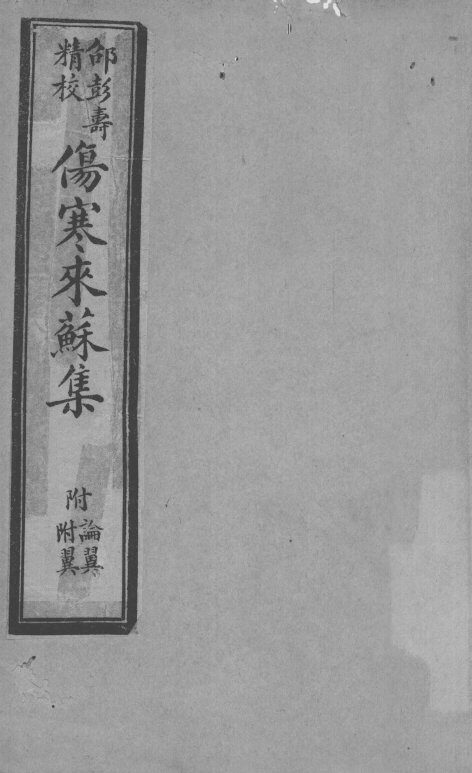 邰彭壽
精校
傷寒來蘇集
附
論翼
附翼